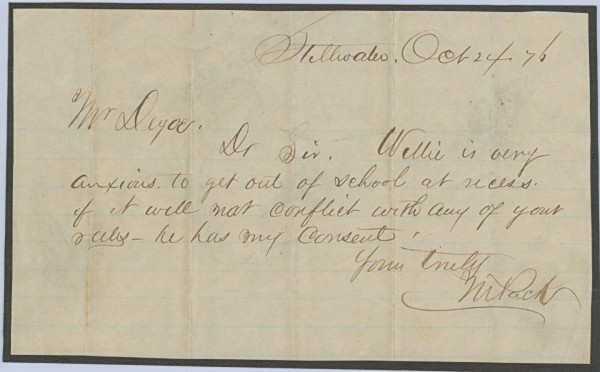 Stillwater. Oct 24 76
Mr Deyoe.
Dr Sir. Willie is very
anxious. to get out of school at recess.
if it will not conflict with any of your
rules - he has my consent.
Yours truly
M Pack